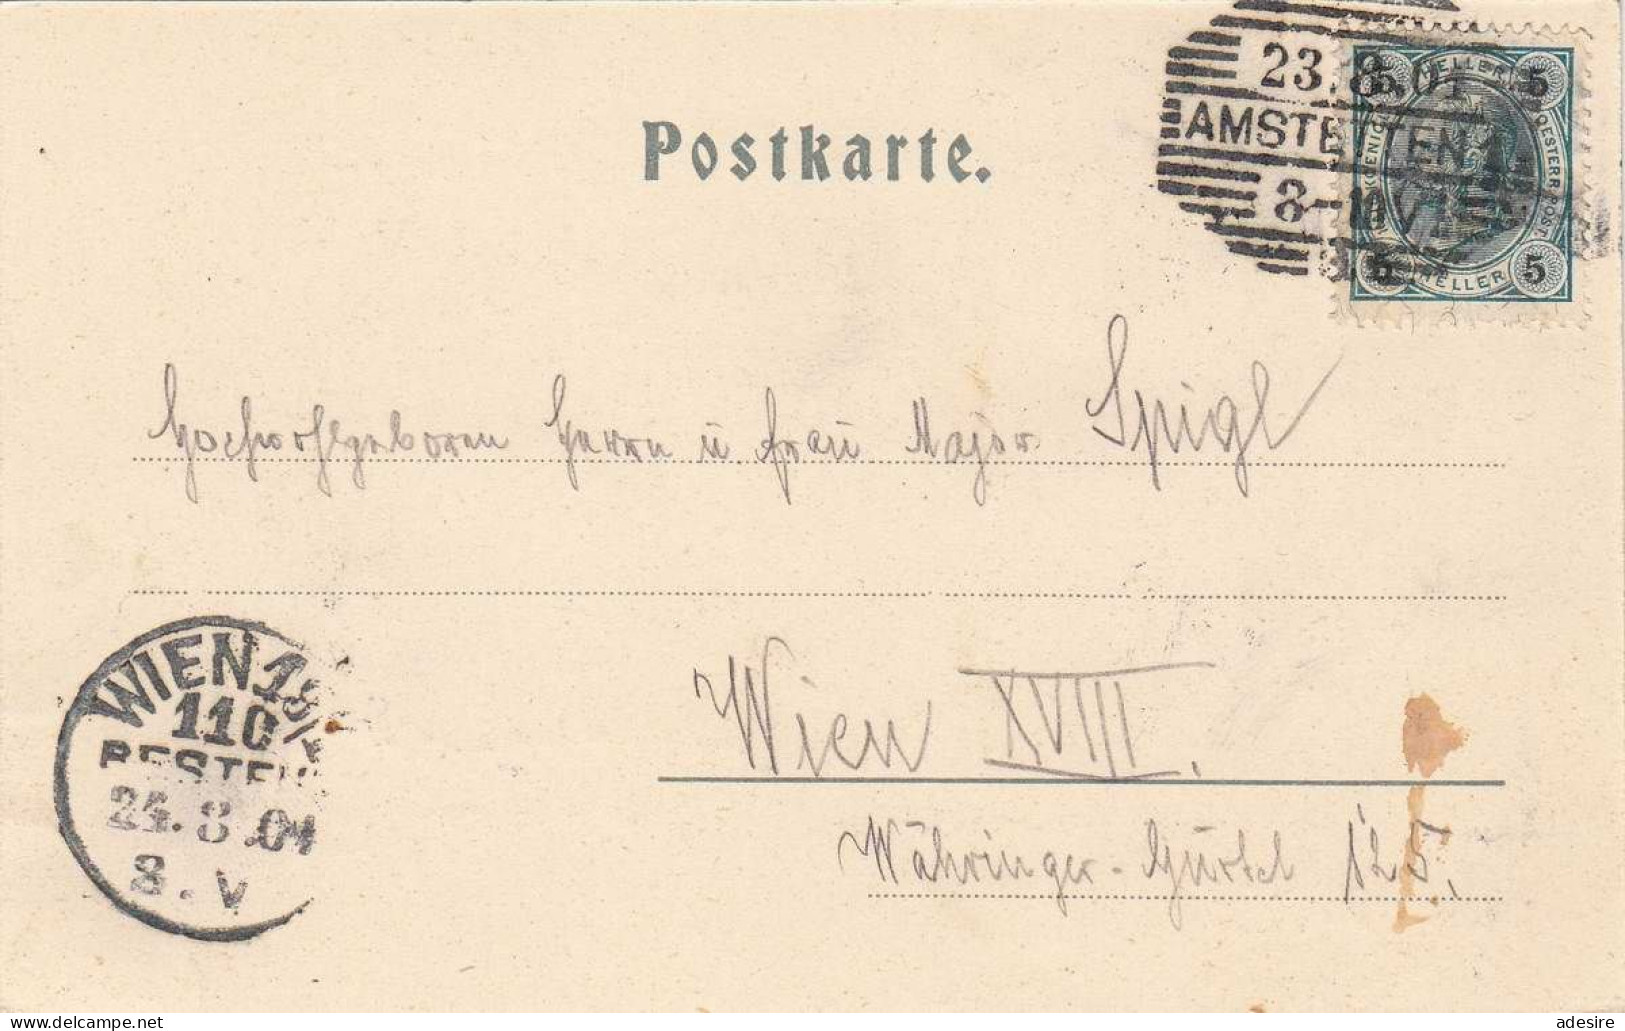 23.8.01
AMSTETTEN 1
8-10 V
HELLER
5 5
OESTERR. POST.
5 5
HELLER
Postkarte.
Hochwohlgeboren Herrn u Frau Major Spigl
Wien XVIII.
Währinger-Gürtel 125.
WIEN 18/1
110
BESTELLT
24. 8 .01
8. V
adesire